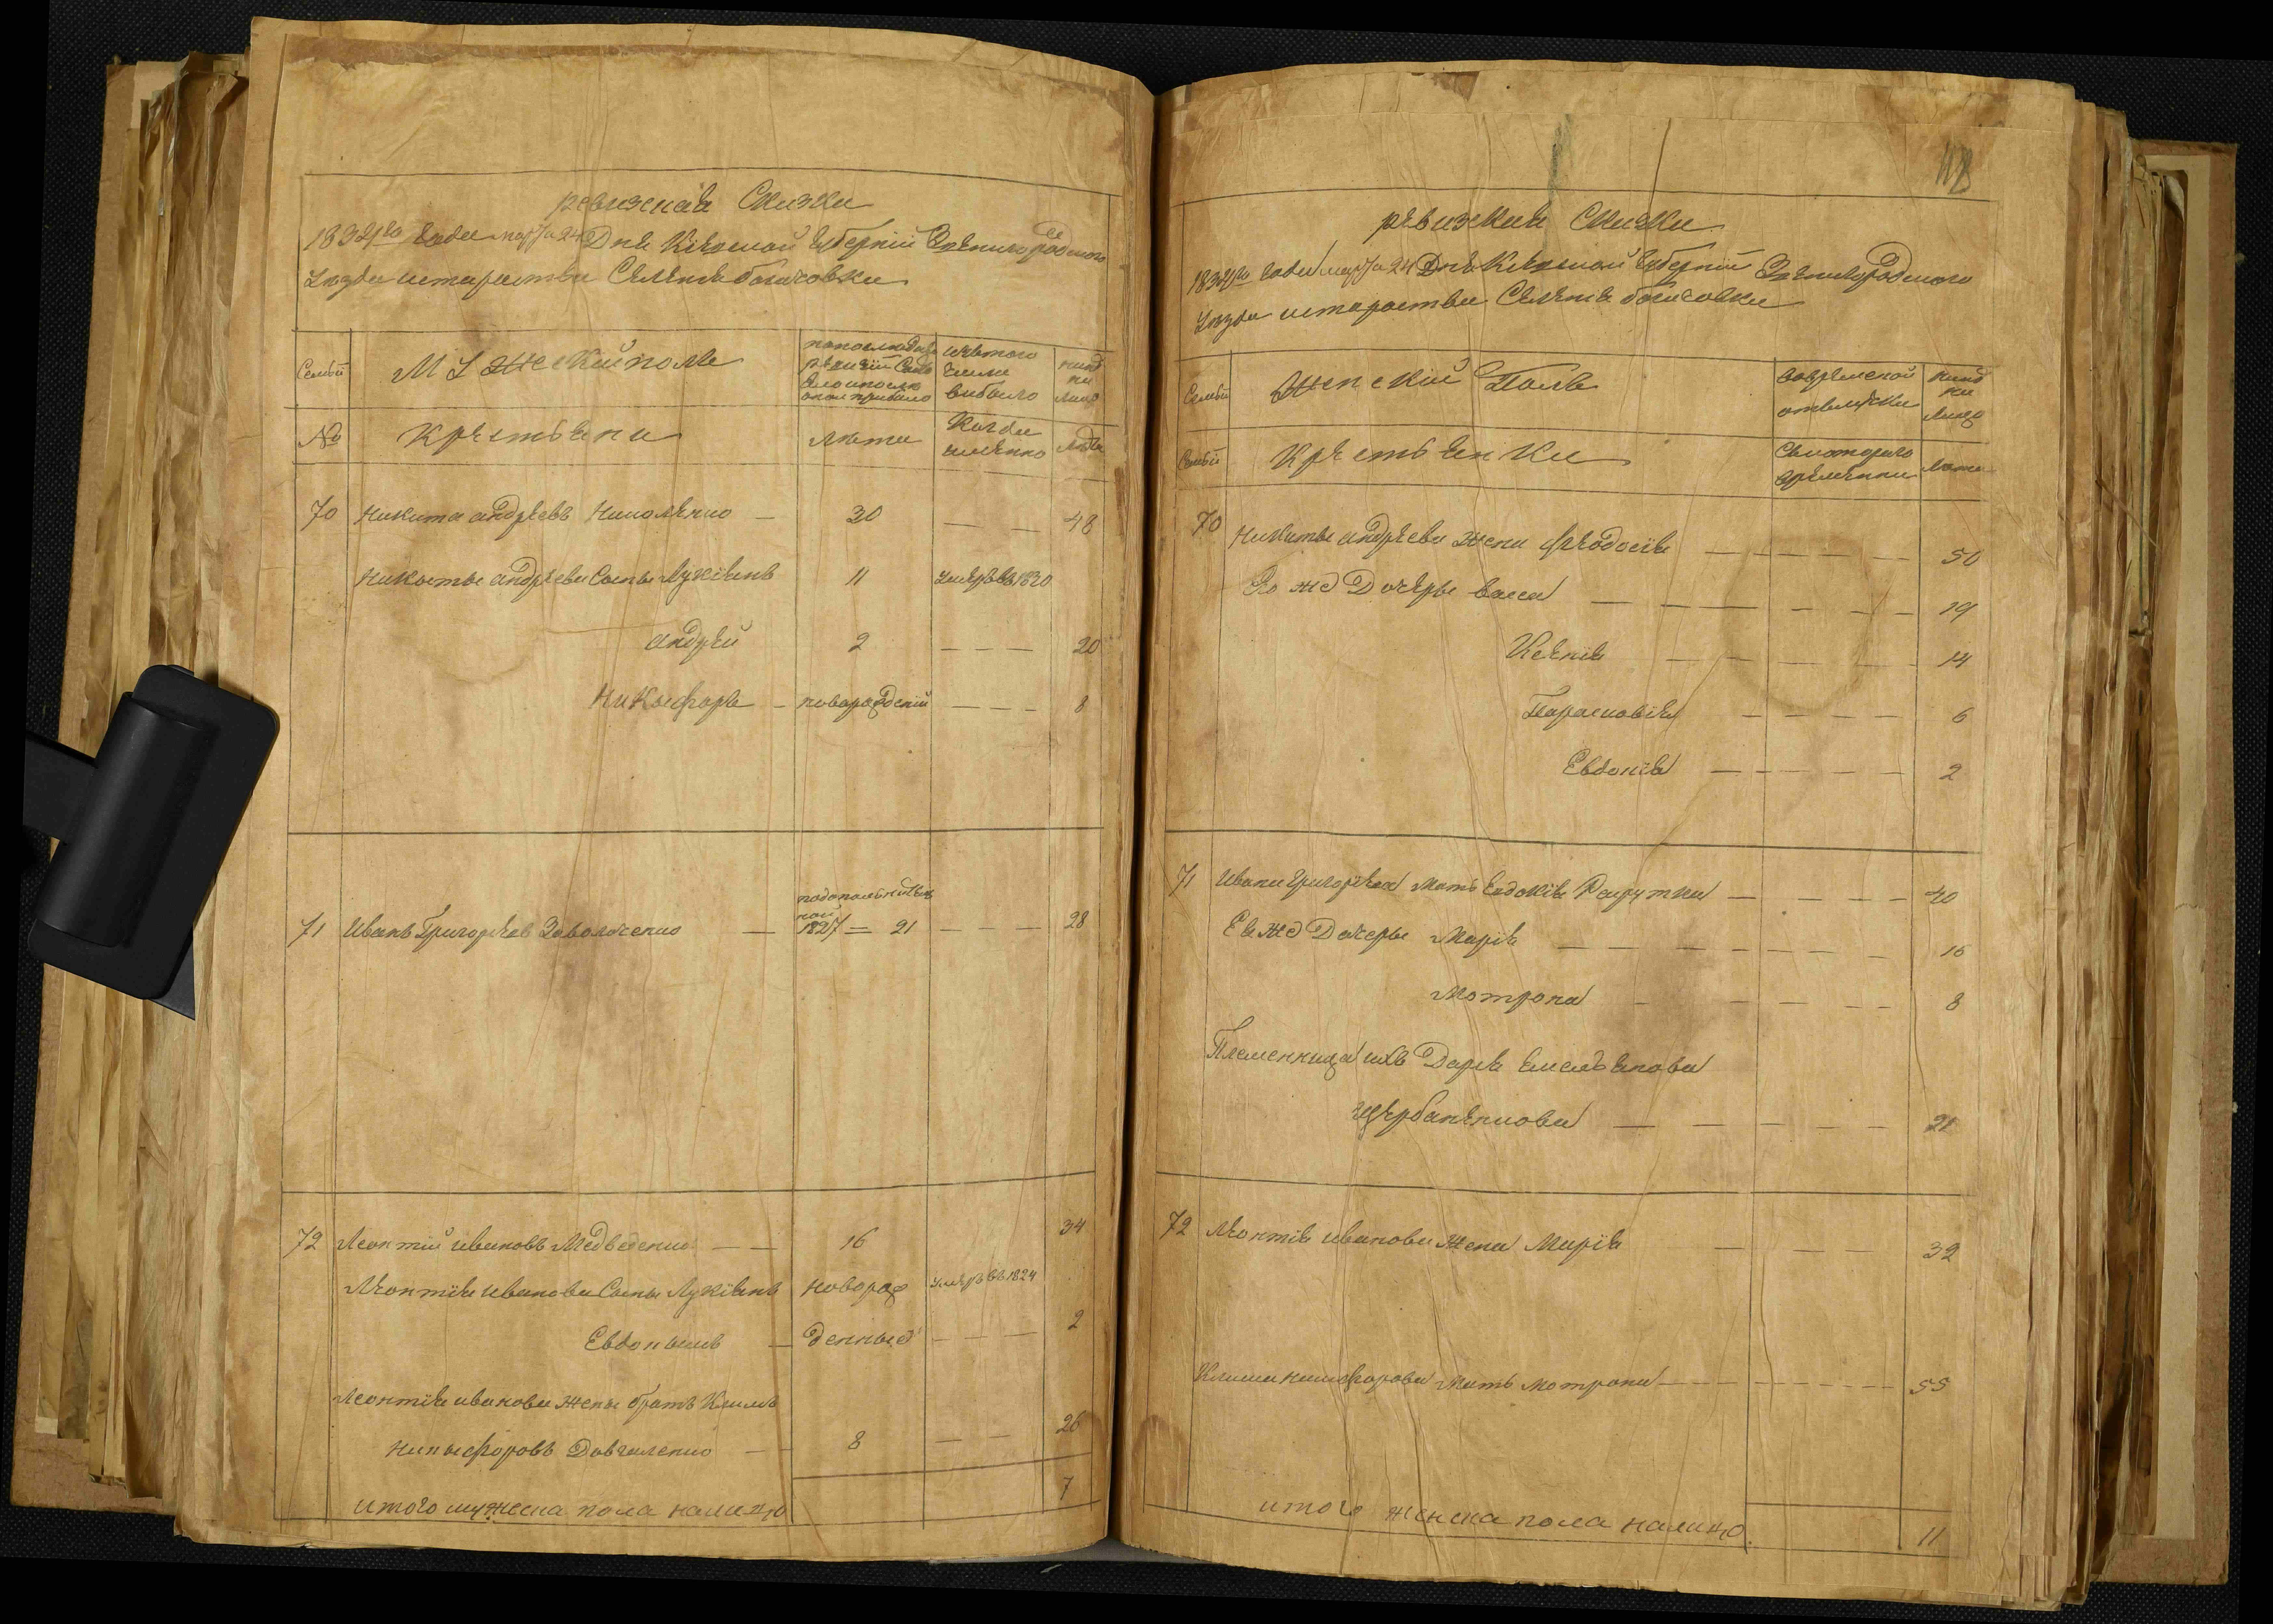 ревизская Сказка
1834го года марта 24 Дня Кіевской Губерніи Звенигородского
Уезда староства Селенія богачовки
Семьи
МУжеский поле
по последней ревизіи Состояло и после оной прибыло
изтого числа выбыло
ныне на лицо
№
Крестьяни
Лета
Когда именно
Лета
70 Никита андреевъ Николенко — 30 — — 48
Никиты андреева Сыны Лукіянъ 11 Умеръ въ 1830
андрей 2 — — — 20
Никыфоръ — новорожденій — — — 8
71 Иванъ Григориевъ Заволоченко — подополнительной 1827 = 21 — — — 28
72 Леонтий ивановъ Медведенко — — 16 34
Леонтія иванова Сыны Лукіянъ новорож Умеръ въ 1824
Евдокымъ — денные — — — 2
Леонтія иванова жены братъ Климъ
Никыфоровъ Довгаленко — — 8 — — 26
итого мужеска пола налицо 7
118
ревизская Сказка
1834го года марта 24 Дня Кіевской Губерніи Звенигородского
Уезда староства Селенія богачовки
Семьи
Женскій Полъ
вовременной отлучки
ныне на лицо
Семьи
Крестьянки
Скоторого времени
Лета
70 Никиты андреева Жена Феодосія — — — — — 50
Его же Дочеры васса — — — — — — 19
Ксенія — — — — — 14
Парасковія — — — — 6
Евдокія — — — — — 2
71 Ивана григорієва мать Евдокія — — — — 40
Ея же Дочеры Марія — — — — — — — 16
Мотрона — — — — — 8
Племенница ихъ Дарія Емельянова
Щербаненкова — — — — — 21
72 Леонтія иванова Жена Марія — — — 32
Клима никифорова Мать мотрона — — — — — — 55
итого женска пола налицо 11